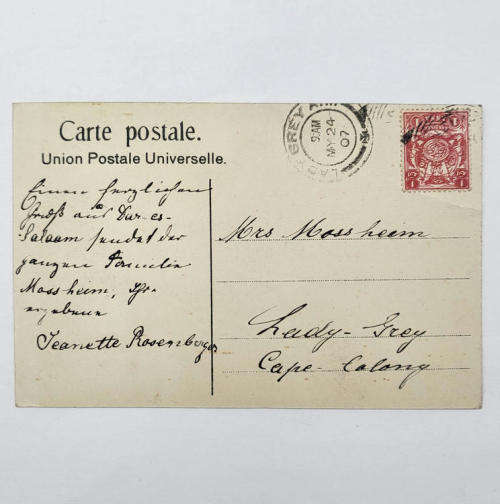 Carte postale.
Union Postale Universelle.
Einen herzlichen
Gruß aus Dar-es-
Salaam sendet der
ganzen Familie
Mossheim, Ihre
ergebene
Jeanette Rosenberger
LADY GREY
9 AM
MY 24
07
Mrs Mossheim
Lady-Grey
Cape Colony